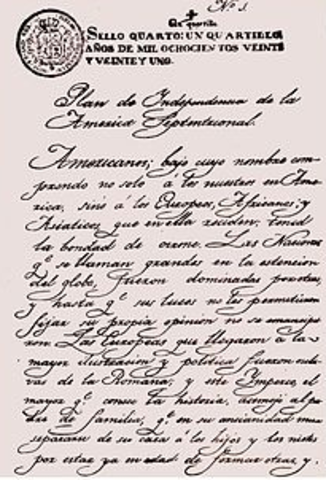 Nº 1.
Un quartillo
SELLO QUARTO: UN QUARTILLO
AÑOS DE MIL OCHOCIENTOS VEINTE
Y VEINTE Y UNO.
Plan de Independencia de la
America Septentrional.
Americanos; bajo cuyo nombre com-
prendo no solo á los nacidos en Ame-
rica, sinó á los Europeos, Africanos, y
Asiaticos que en ella residen: tened
la bondad de oirme. Las Naciones
q.e se llaman grandes en la extencion
del globo, fueron dominadas por otras,
y hasta q.e sus luces no les permitieron
fijar su propia opinion no se emancipa-
ron. Las Europeas que llegaron á la
mayor ilustracion y politica fueron escla-
vas de la Romana; y este Imperio, el
mayor q.e conoce la historia, asemejó al pa-
dre de familia, q.e en su ancianidad mira
separarse de su casa á los hijos y los nietos
por estar ya en edad de formar otras, y